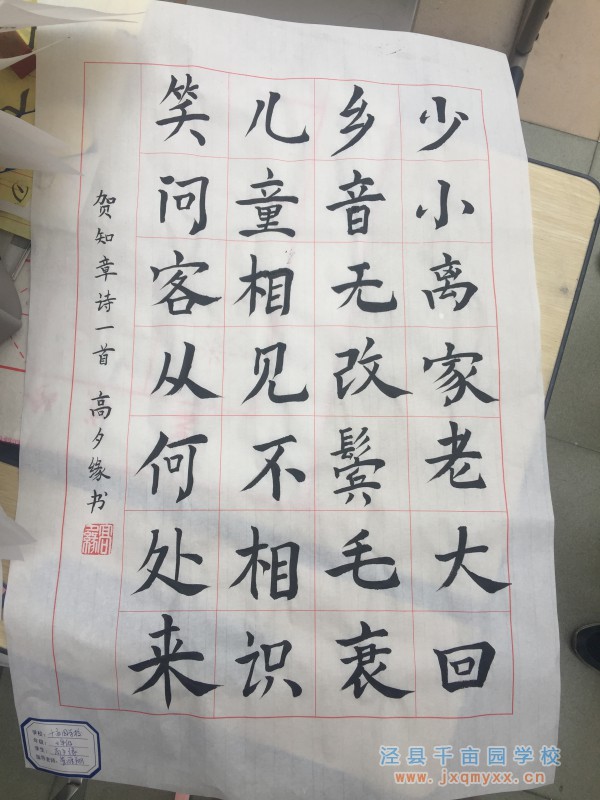 少小离家老大回
乡音无改鬓毛衰
儿童相见不相识
笑问客从何处来
贺知章诗一首 高夕缘书
泾县千亩园学校
www.jxqmyxx.cn